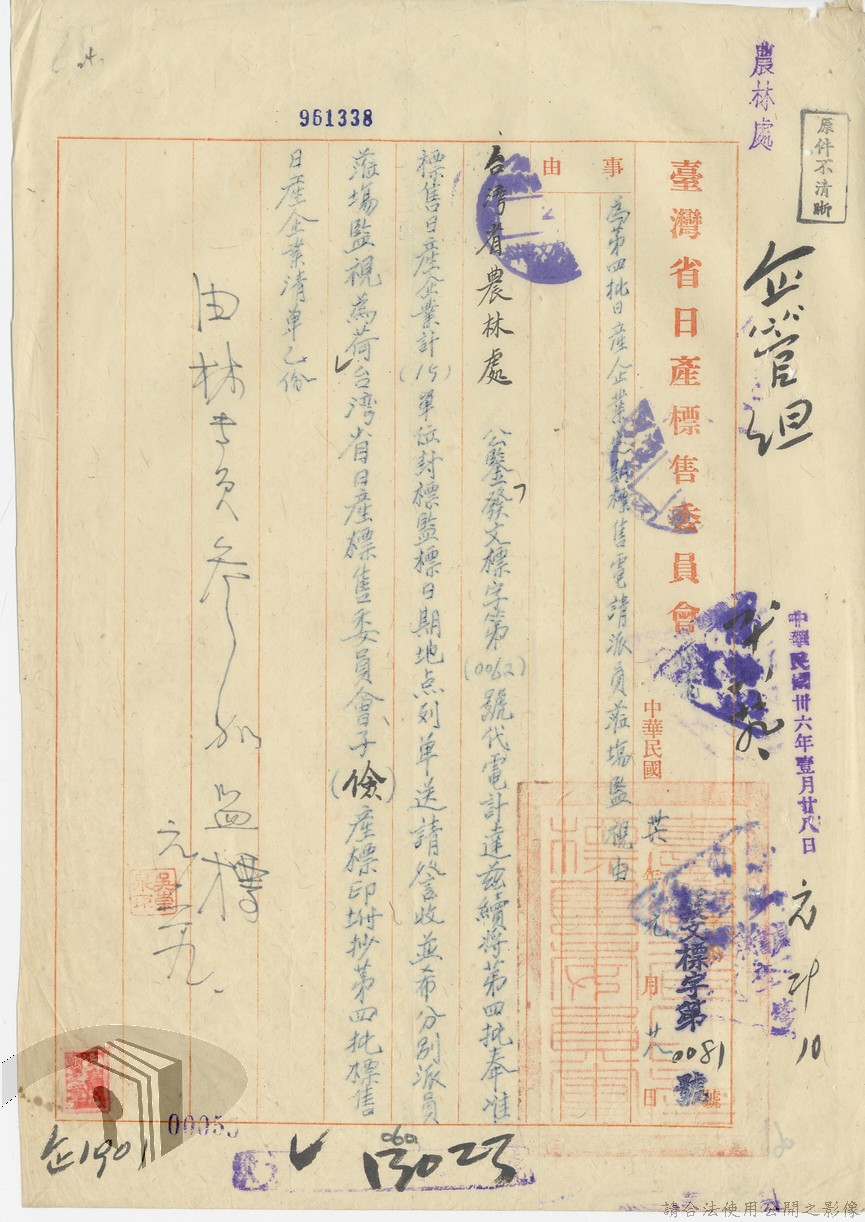 農林處
原件不清晰
961338
企管組
中華民國卅六年壹月廿八日
臺灣省日產標售委員會
中華民國 卅六年元月廿八日
發文標字第0081號
事由
為第四批日產企業定期標售電請派員蒞場監視由
台灣省農林處 公鑒發文標字第(0062)號代電計達茲續將第四批奉准
標售日產企業計(15)單位封標監標日期地点列單送請詧收並希分別派員
蒞場監視為荷台灣省日產標售委員會子(儉)產標印坿抄第四批標售
日產企業清單乙份
由林專員參加監標
元
企1901
13023
請合法使用公開之影像